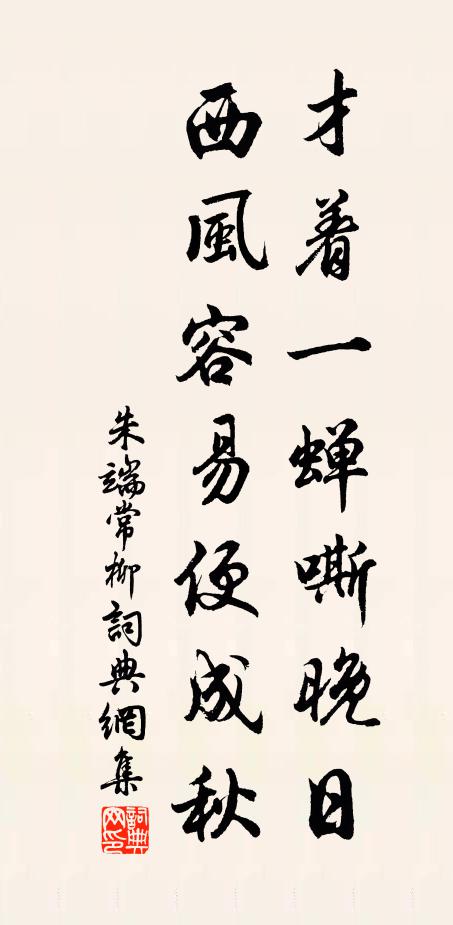 才着一蝉嘶晚日
西風容易便成秋
朱端常柳詞典網集
詞典網印